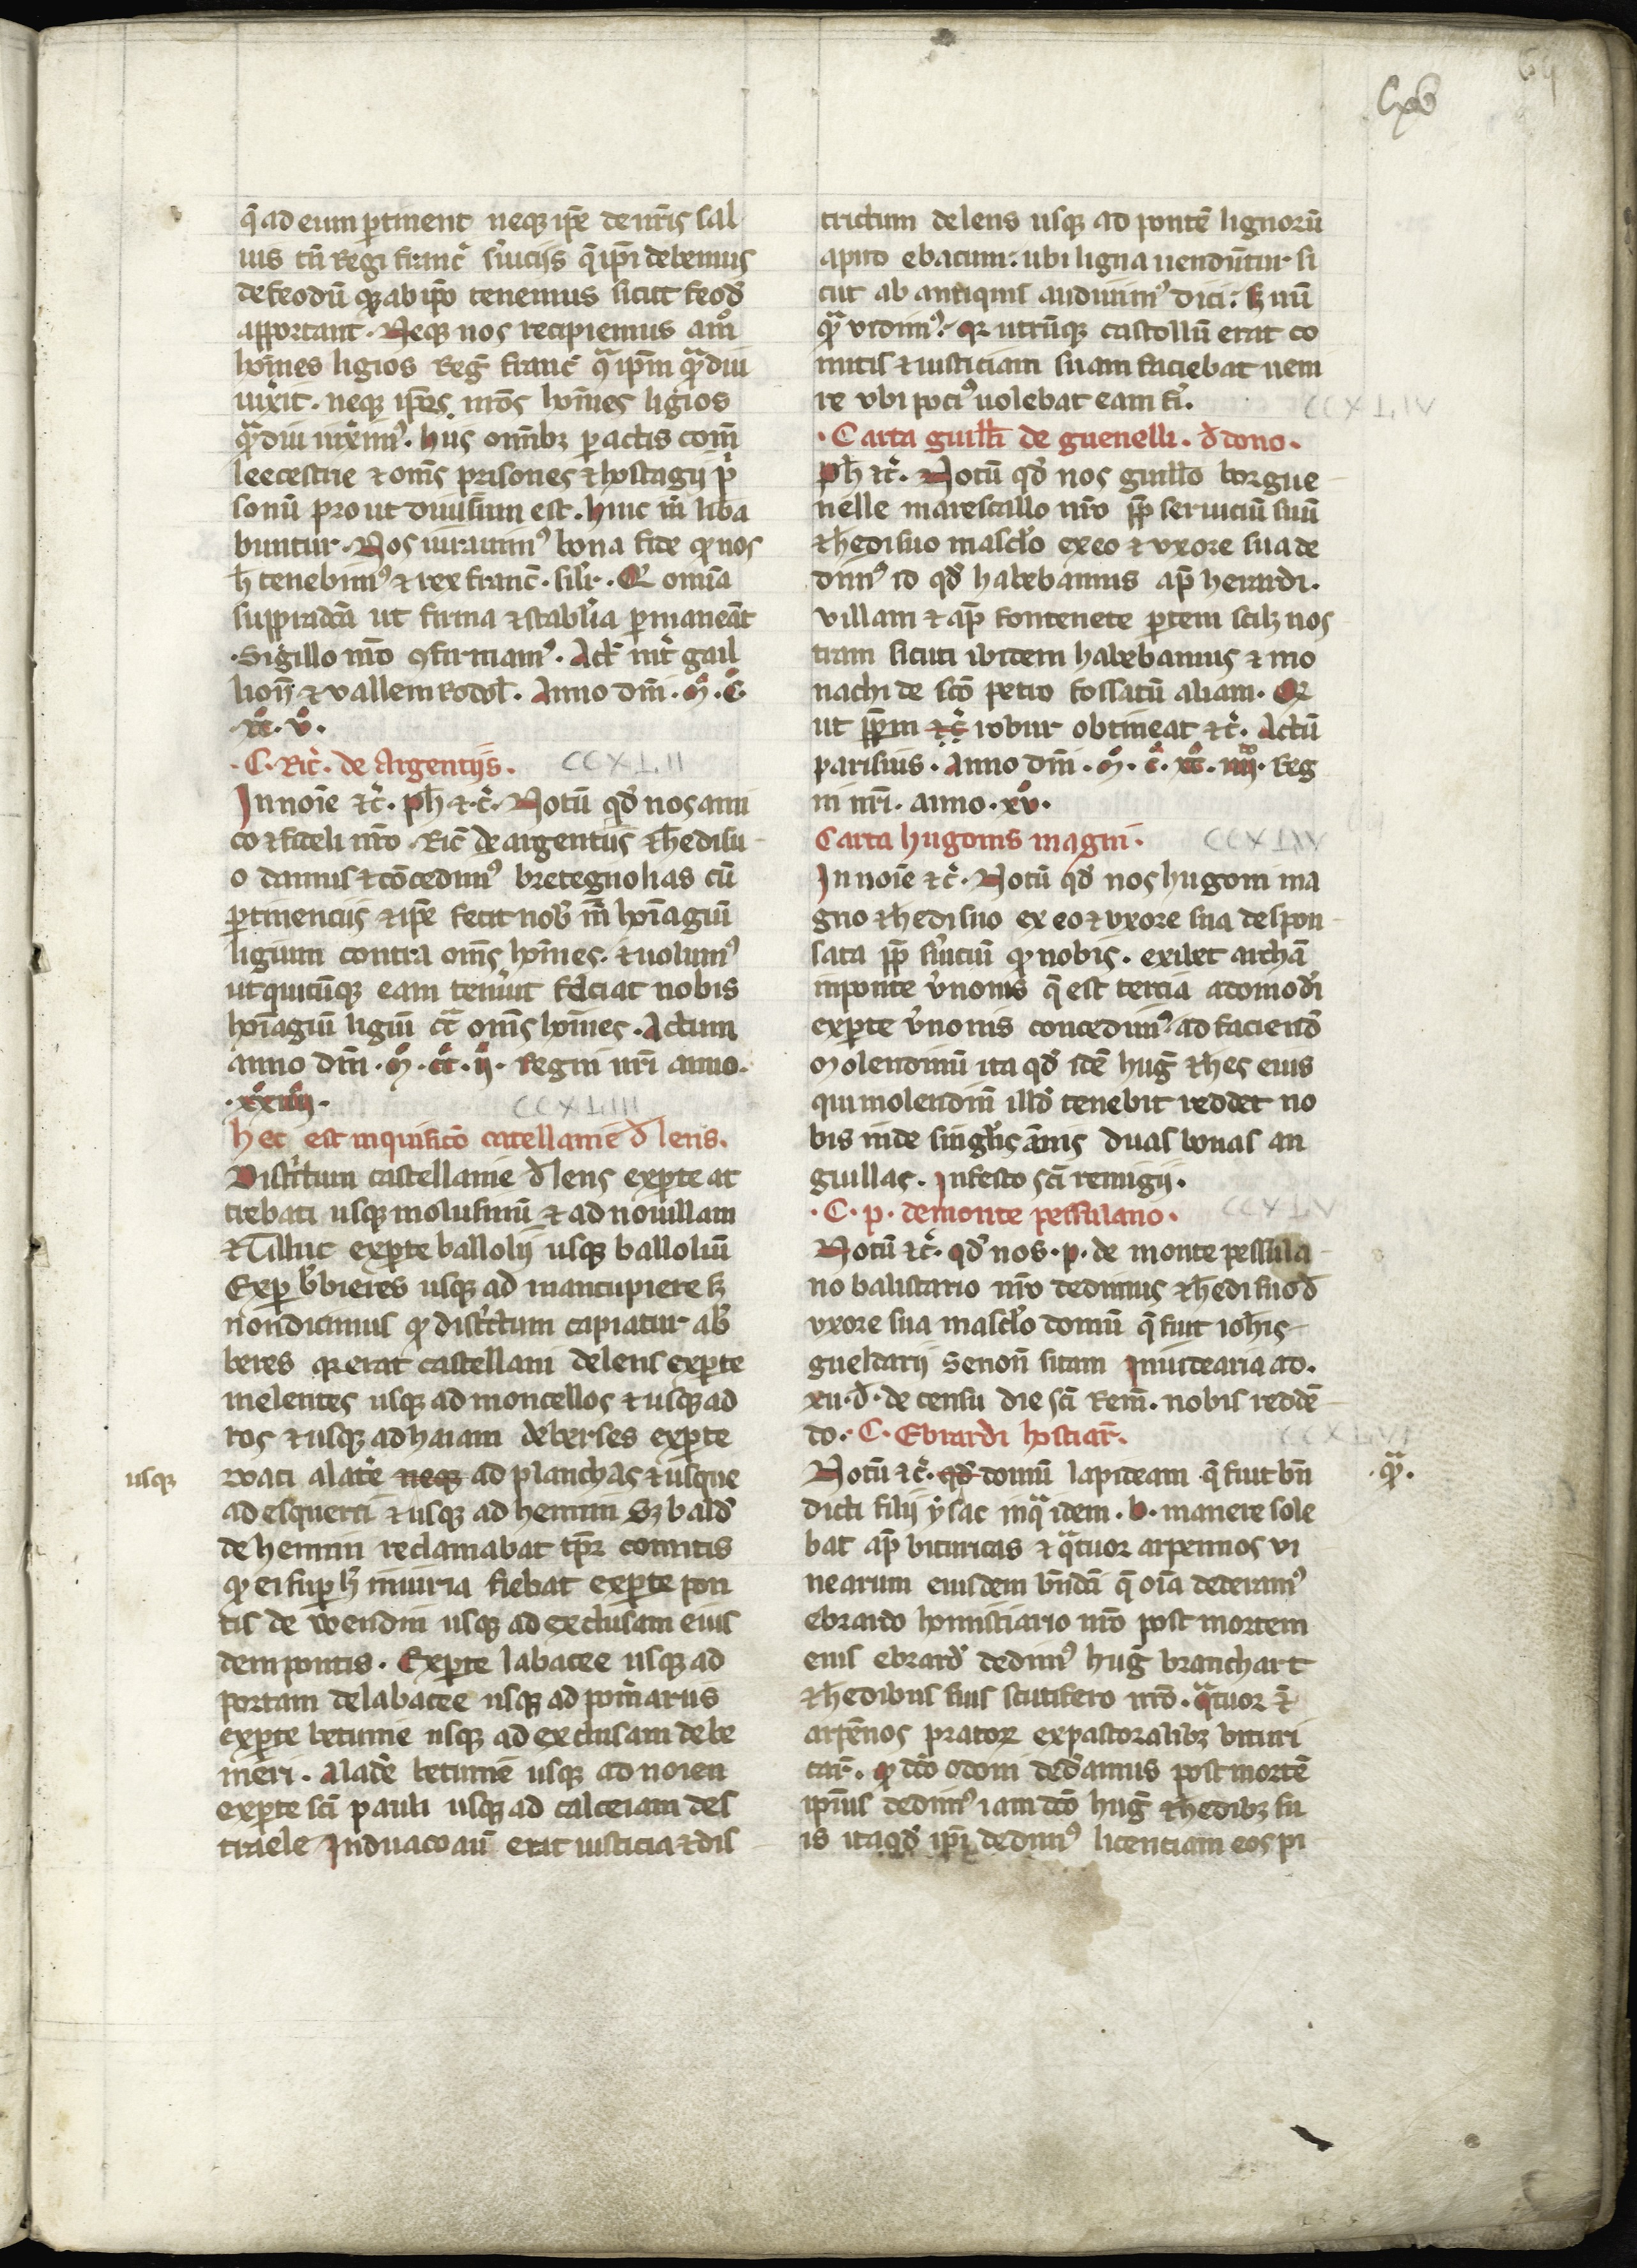 Cxv
q̄ ad eum ꝑtinent neqꝫ ip̄e de nr̄is sal
uis tn̄ Regi franc̄ seruiciis q̄ ip̄i debemus
de feodū qꝫ ab ip̄o tenemus sicut feod̄
apportant. Neqꝫ nos recipiemus am̊
hoīes ligios Reḡ franc̄ q̄ ip̄m q̄ diu
uixit. neqꝫ ip̄os nr̄os hoīes ligios
q̄diu uixim⁹. hus omībꝫ ꝑactis com̄
leecestrie ⁊ om̄s prisones ⁊ hostagii p̄
sonū prout diuisum est. hinc m̄ liba
buntur. Nos iurauim⁹ bona fide qꝫ nos
h̄ tenebim⁹ ⁊ rex franc̄. silr̄. Qꝛ omīa
supradcā ut firma ⁊ stabilia ꝑmaneāt
Sigillo nr̄o ꝯfirmam⁹. Act̄ int̄ gail
lion̄ ⁊ vallem Rodol̄. Anno dn̄i. M̊. C̊.
xc̊. v̊.
C. Ric̄. de Argentiis. CCXLII
In noīe ⁊c̄. ph̄ ⁊c̄. Notū qd̄ nos ami
co ⁊ fideli nr̄o Ric̄ de argentiis ⁊ hedi su
o damus ⁊ cōcedim⁹ bretegnolias cū
ꝑtinenciis ⁊ ip̄e fecit nob̄ in̄ hoīagiū
ligium contra om̄s hoīes. ⁊ uolum⁹
ut quicūqꝫ eam tenūit faciat nobis
hoīagiū ligiū ct̄ om̄s hoīes. Actum
anno dn̄i. M̊. cc̊. ij̊. Regni nr̄i anno.
xxiiij.
CCXLIII
hec est inquisicō castellanie d̄ lens.
Districtum castellanie d̄ lens exꝑte at
trebati usqꝫ molusinū ⁊ ad nouillam
⁊ illuc exꝑte ballolii usqꝫ balloliū
Exꝑ b̄bieres usqꝫ ad mancupiere sꝫ
non dicimus qꝫ districtum capiatur ab̄
beres qꝛ erat castellani de lens exꝑte
melentes usqꝫ ad moncellos ⁊ usqꝫ ad
ros ⁊ usqꝫ ad haiam de berses exꝑte
usqꝫ
vvaci a latē neqꝫ ad planchas ⁊ usque
ad esquerci ⁊ usqꝫ ad henuin Sꝫ bald̄
de hennin reclamabat tp̄r comitis
qꝫ ei suꝑ h̄ iniuria fiebat exꝑte pon
tis de wendin usqꝫ ad exclusam eius
dem pontis. Exꝑte labacee usqꝫ ad
portam de labacee usqꝫ ad pom̄arius
exꝑte betunie usqꝫ ad exclusam de be
nieri. A latē betunie usqꝫ ad noien
exꝑte scī pauli usqꝫ ad calceiam des
traele In duaco aū erat iusticia ⁊ dis
trictum de lens usqꝫ ad pontē lignorū
apud ebacum: ubi ligna uendūtur si
cut ab antiquis audiuim⁹ dici: sꝫ nū
q̄ vidim⁹. qꝛ utrūqꝫ castellū erat co
mitis ⁊ iusticiam suam faciebat uem
re ubi poci⁹ uolebat eam fi.
CCXLIV
Carta guill̄i de guenelli. d̄ dono.
ph̄ ⁊c̄. Notū qd̄ nos guill̄o borgue
nelle marescallo nr̄o ꝓp̄ seruiciū suū
⁊ hedi suo mascl̄o ex eo ⁊ uxore sua de
dim⁹ id qd̄ habebamus ap̄ herardi.
villam ⁊ ap̄ fontenete ꝑtem scilꝫ nos
tram sicuti ibidem habebamus ⁊ mo
nachi de scō petro fossatū aliam. Qꝛ
ut ꝑp̄m ⁊c̄ robur obtineat ⁊c̄. Actū
parisius. Anno dn̄i. M̊. c̊. xc̊. iiij. Reg
ni nr̄i. anno. xv̊.
Carta hugonis magni. CCXLIV
In noīe ⁊c̄. Notū qd̄ nos hugoni ma
gno ⁊ hedi suo ex eo ⁊ uxore sua despon
sata ꝓp̄ suiciū qꝫ nobis. exibet archā
in ponte v̄nonis q̄ est tercia a domo dī
exꝑte v̄nonis concedim⁹ ad faciend̄
Molendinū ita qd̄ idē huḡ ⁊ hes eius
qui molendinū illd̄ tenebit reddet no
bis inde singlis annis duas bonas an
guillas. In festo scī remigii.
C. p. de monte pessulano. CCXLV
Notū ⁊c̄. qd̄ nos. p. de monte pessula
no balistario nr̄o dedimus ⁊ hedi suo d̄
uxore sua mascl̄o domū q̄ fuit ioh̄is
gueldarii Senon̄ sitam In iudearia ad.
xii. d̄. de censu die scī Rem̄. nobis reddē
do. C. Ebrardi hostiar̄. CCXLVI
Notū ⁊c̄. qd̄ domū lapideam q̄ fuit bn̄
q̄.
dicti filii ysac in q̄ idem. b. manere sole
bat ap̄ bituricas ⁊ q̄tuor arpennos vi
nearum eiusdem bn̄dcī q̄ oīa dederam⁹
ebrardo hommstiario nr̄o post mortem
eius ebrard̄ dedim⁹ huḡ branchart
⁊ hedibus suis scutifero nr̄o. q̄tuor ⁊
arpēnos pratoꝝ ex pastoralibꝫ bituri
car̄. qꝫ dcō odoni ded̄amus post mortē
ip̄ius dedim⁹ iam dcō huḡ ⁊ hedibꝫ su
is ita qd̄ ip̄i dedim⁹ licentiam eos pi